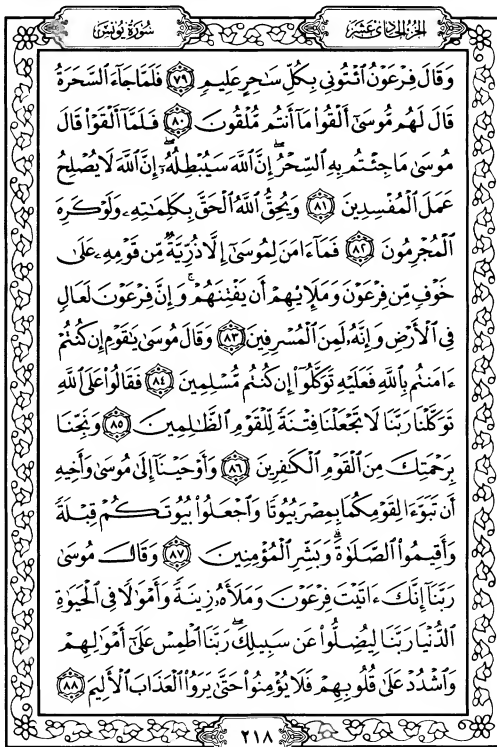 الجزء الحادي عشر سورة يونس
وَقَالَ فِرْعَوْنُ ٱئْتُونِى بِكُلِّ سَٰحِرٍ عَلِيمٍ ٧٩ فَلَمَّا جَآءَ ٱلسَّحَرَةُ
قَالَ لَهُم مُّوسَىٰٓ أَلْقُوا۟ مَآ أَنتُم مُّلْقُونَ ٨٠ فَلَمَّآ أَلْقَوْا۟ قَالَ
مُوسَىٰ مَا جِئْتُم بِهِ ٱلسِّحْرُ ۖ إِنَّ ٱللَّهَ سَيُبْطِلُهُۥٓ ۖ إِنَّ ٱللَّهَ لَا يُصْلِحُ
عَمَلَ ٱلْمُفْسِدِينَ ٨١ وَيُحِقُّ ٱللَّهُ ٱلْحَقَّ بِكَلِمَٰتِهِۦ وَلَوْ كَرِهَ
ٱلْمُجْرِمُونَ ٨٢ فَمَآ ءَامَنَ لِمُوسَىٰٓ إِلَّا ذُرِّيَّةٌ مِّن قَوْمِهِۦ عَلَىٰ
خَوْفٍ مِّن فِرْعَوْنَ وَمَلَإِي۟هِمْ أَن يَفْتِنَهُمْ ۚ وَإِنَّ فِرْعَوْنَ لَعَالٍ
فِى ٱلْأَرْضِ وَإِنَّهُۥ لَمِنَ ٱلْمُسْرِفِينَ ٨٣ وَقَالَ مُوسَىٰ يَٰقَوْمِ إِن كُنتُمْ
ءَامَنتُم بِٱللَّهِ فَعَلَيْهِ تَوَكَّلُوٓا۟ إِن كُنتُم مُّسْلِمِينَ ٨٤ فَقَالُوا۟ عَلَى ٱللَّهِ
تَوَكَّلْنَا رَبَّنَا لَا تَجْعَلْنَا فِتْنَةً لِّلْقَوْمِ ٱلظَّٰلِمِينَ ٨٥ وَنَجِّنَا
بِرَحْمَتِكَ مِنَ ٱلْقَوْمِ ٱلْكَٰفِرِينَ ٨٦ وَأَوْحَيْنَآ إِلَىٰ مُوسَىٰ وَأَخِيهِ
أَن تَبَوَّءَا لِقَوْمِكُمَا بِمِصْرَ بُيُوتًا وَٱجْعَلُوا۟ بُيُوتَكُمْ قِبْلَةً
وَأَقِيمُوا۟ ٱلصَّلَوٰةَ ۗ وَبَشِّرِ ٱلْمُؤْمِنِينَ ٨٧ وَقَالَ مُوسَىٰ
رَبَّنَآ إِنَّكَ ءَاتَيْتَ فِرْعَوْنَ وَمَلَأَهُۥ زِينَةً وَأَمْوَٰلًا فِى ٱلْحَيَوٰةِ
ٱلدُّنْيَا رَبَّنَا لِيُضِلُّوا۟ عَن سَبِيلِكَ ۖ رَبَّنَا ٱطْمِسْ عَلَىٰٓ أَمْوَٰلِهِمْ
وَٱشْدُدْ عَلَىٰ قُلُوبِهِمْ فَلَا يُؤْمِنُوا۟ حَتَّىٰ يَرَوُا۟ ٱلْعَذَابَ ٱلْأَلِيمَ ٨٨
٢١٨